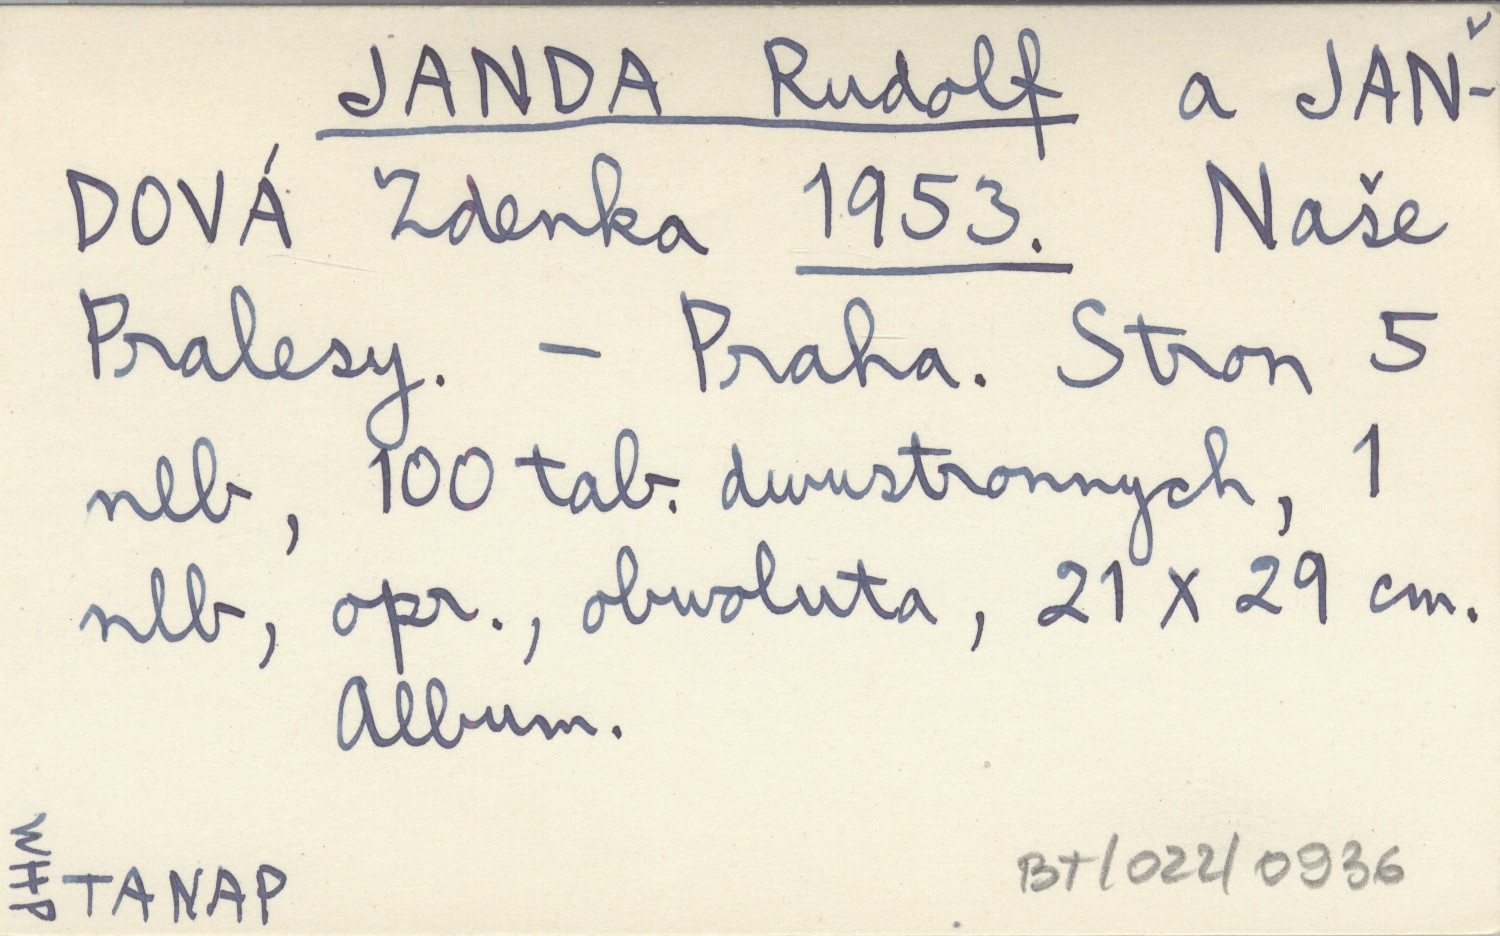 JANDA Rudolf a JAŇ-
DOVÁ Zdenka 1953. Naše
Pralesy. – Praha. Stron 5
nlb, 100 tab. dwustronnych, 1
nlb, opr., obwoluta, 21 x 29 cm.
Album.
WHP
TANAP
BT/022/0936